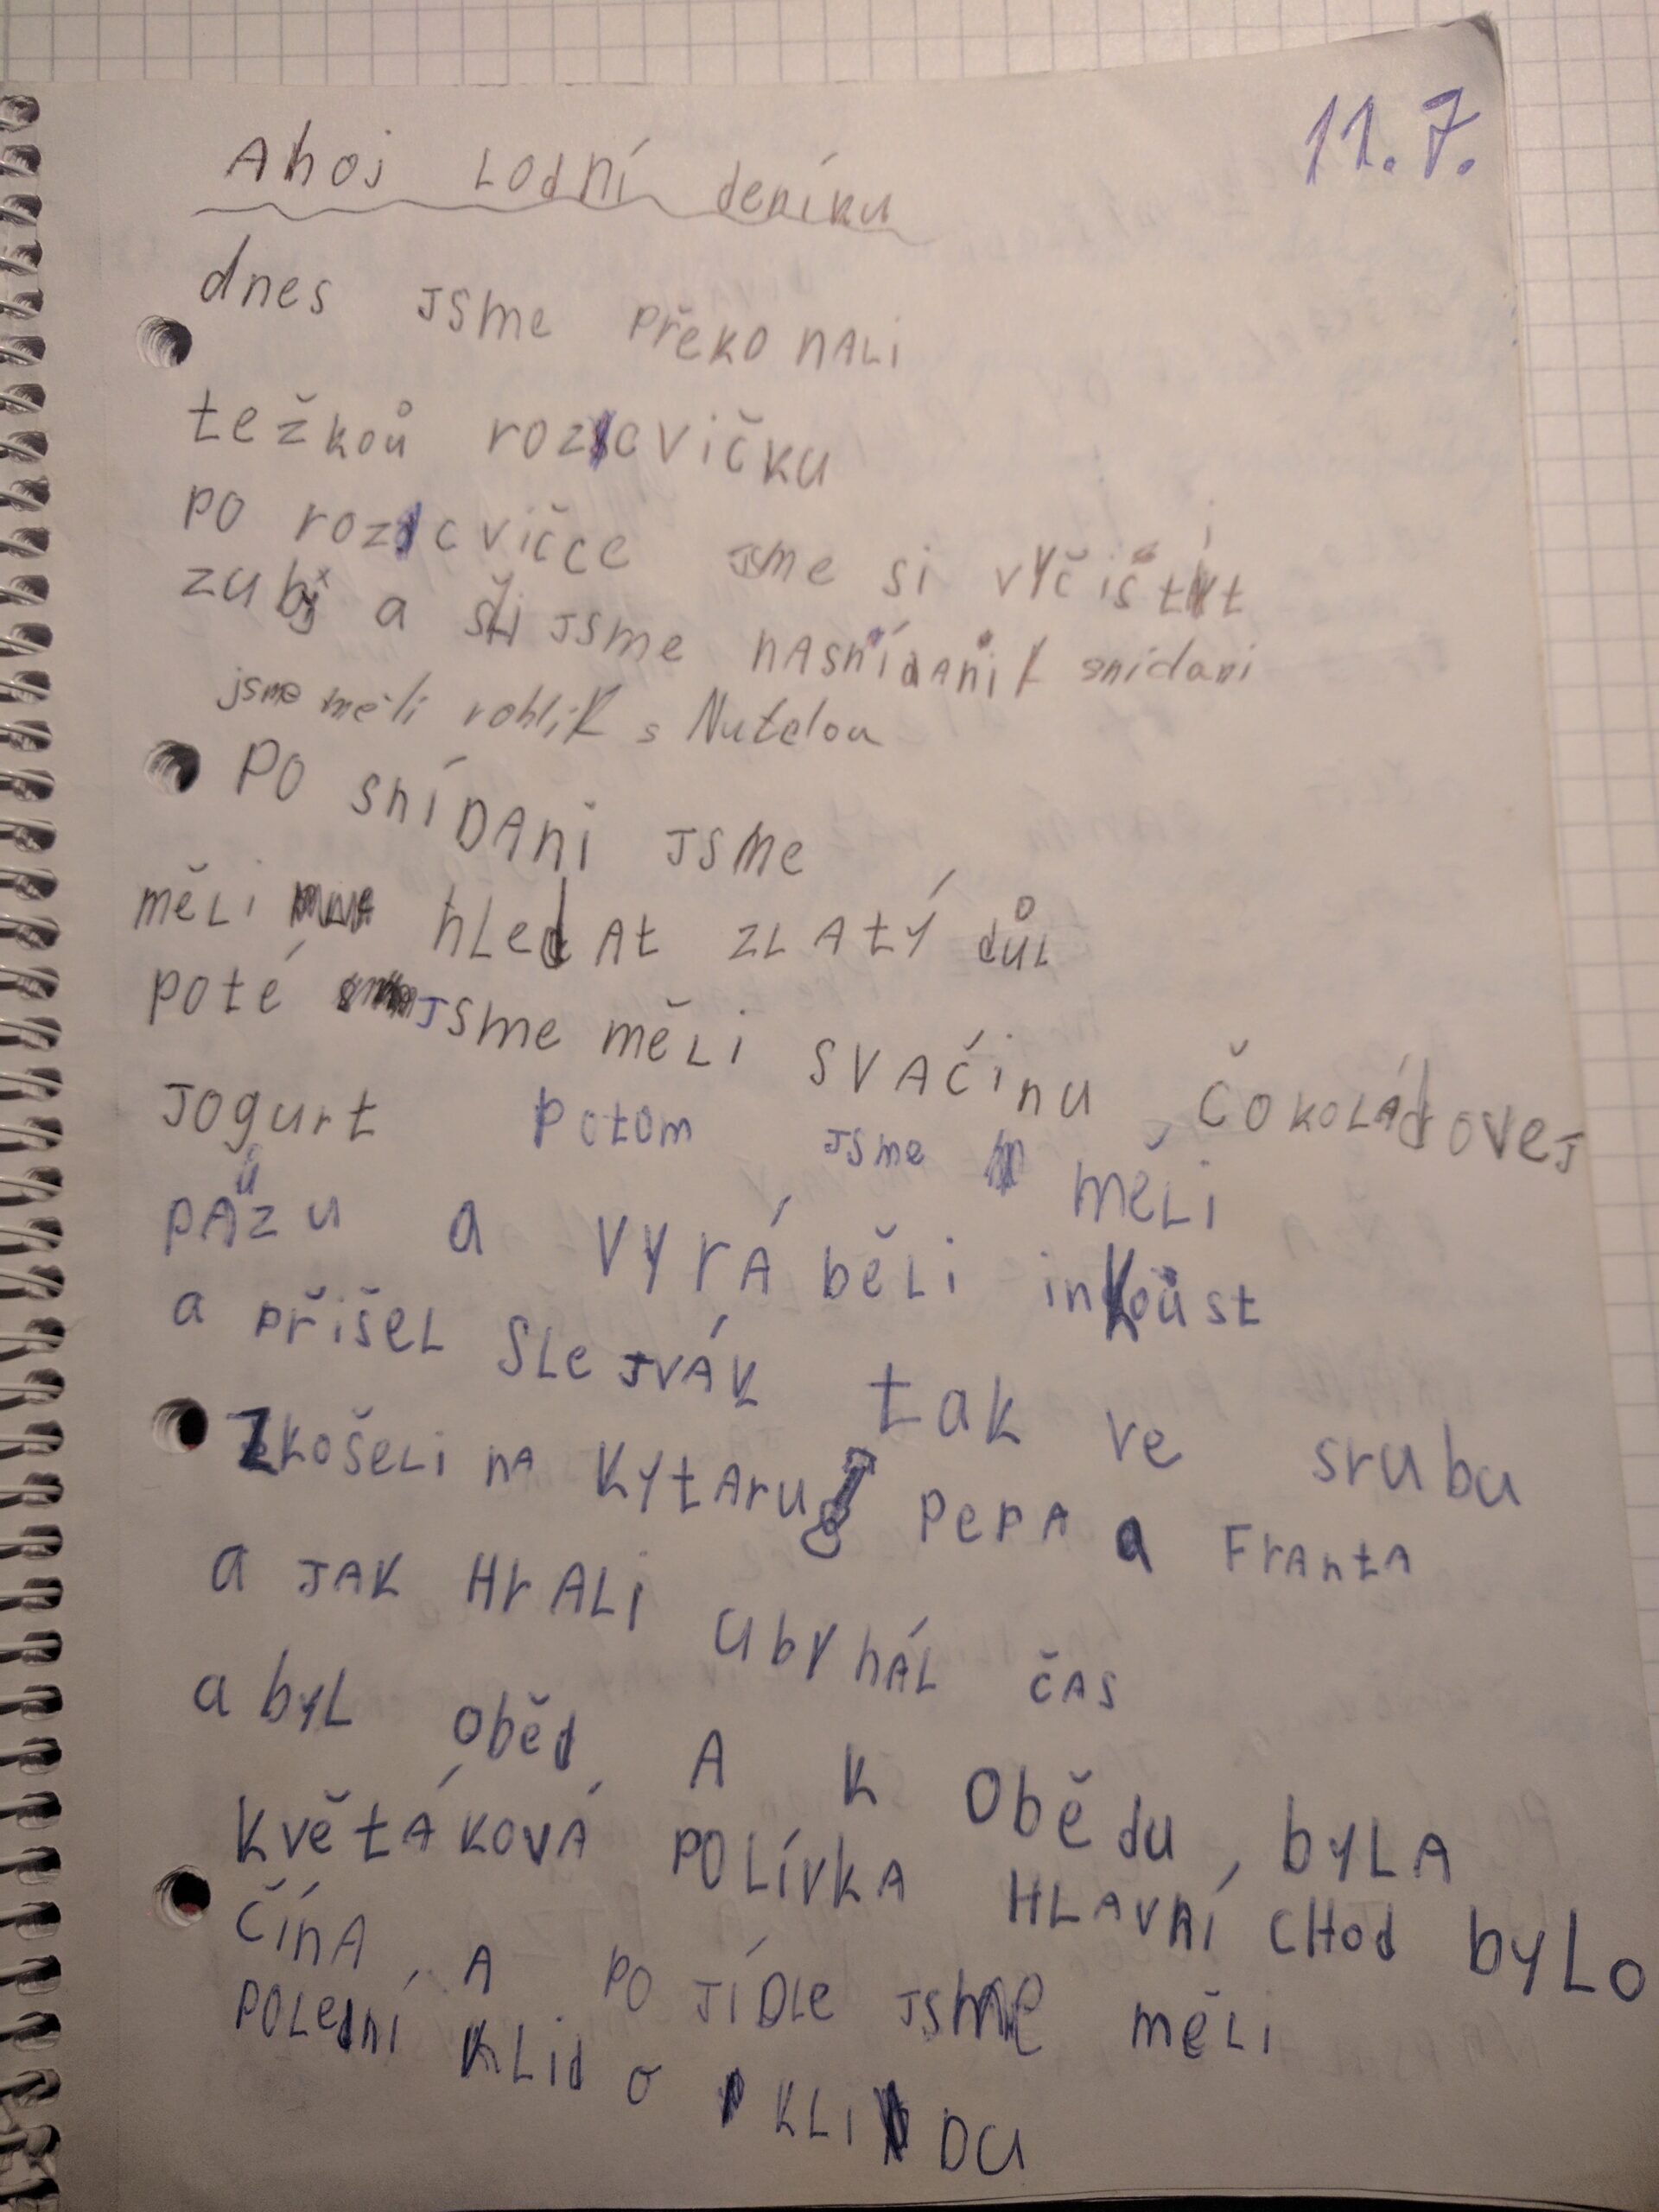 11.7.
Ahoj Lodní deníku
dnes jsme překonali
težkoů rozcvičku
po rozcvičce jsme si vyčistit
zuby a šli jsme nasnídani k snídani
jsme měli rohlík s Nutelou
Po snídani jsme
měli hledat zlatý důl
poté jsme měli svačinu, čokoládovej
jogurt potom jsme měli
paůzu a vyráběli inkoůst
a přišel slejvák tak ve srubu
zkošeli na kytaru Pepa a Franta
a jak hrali ubyhál čas
a byl oběd, A k obědu, byla
květáková polívka hlavní chod bylo
čína, A po jídle jsme měli
polední klid o klidu